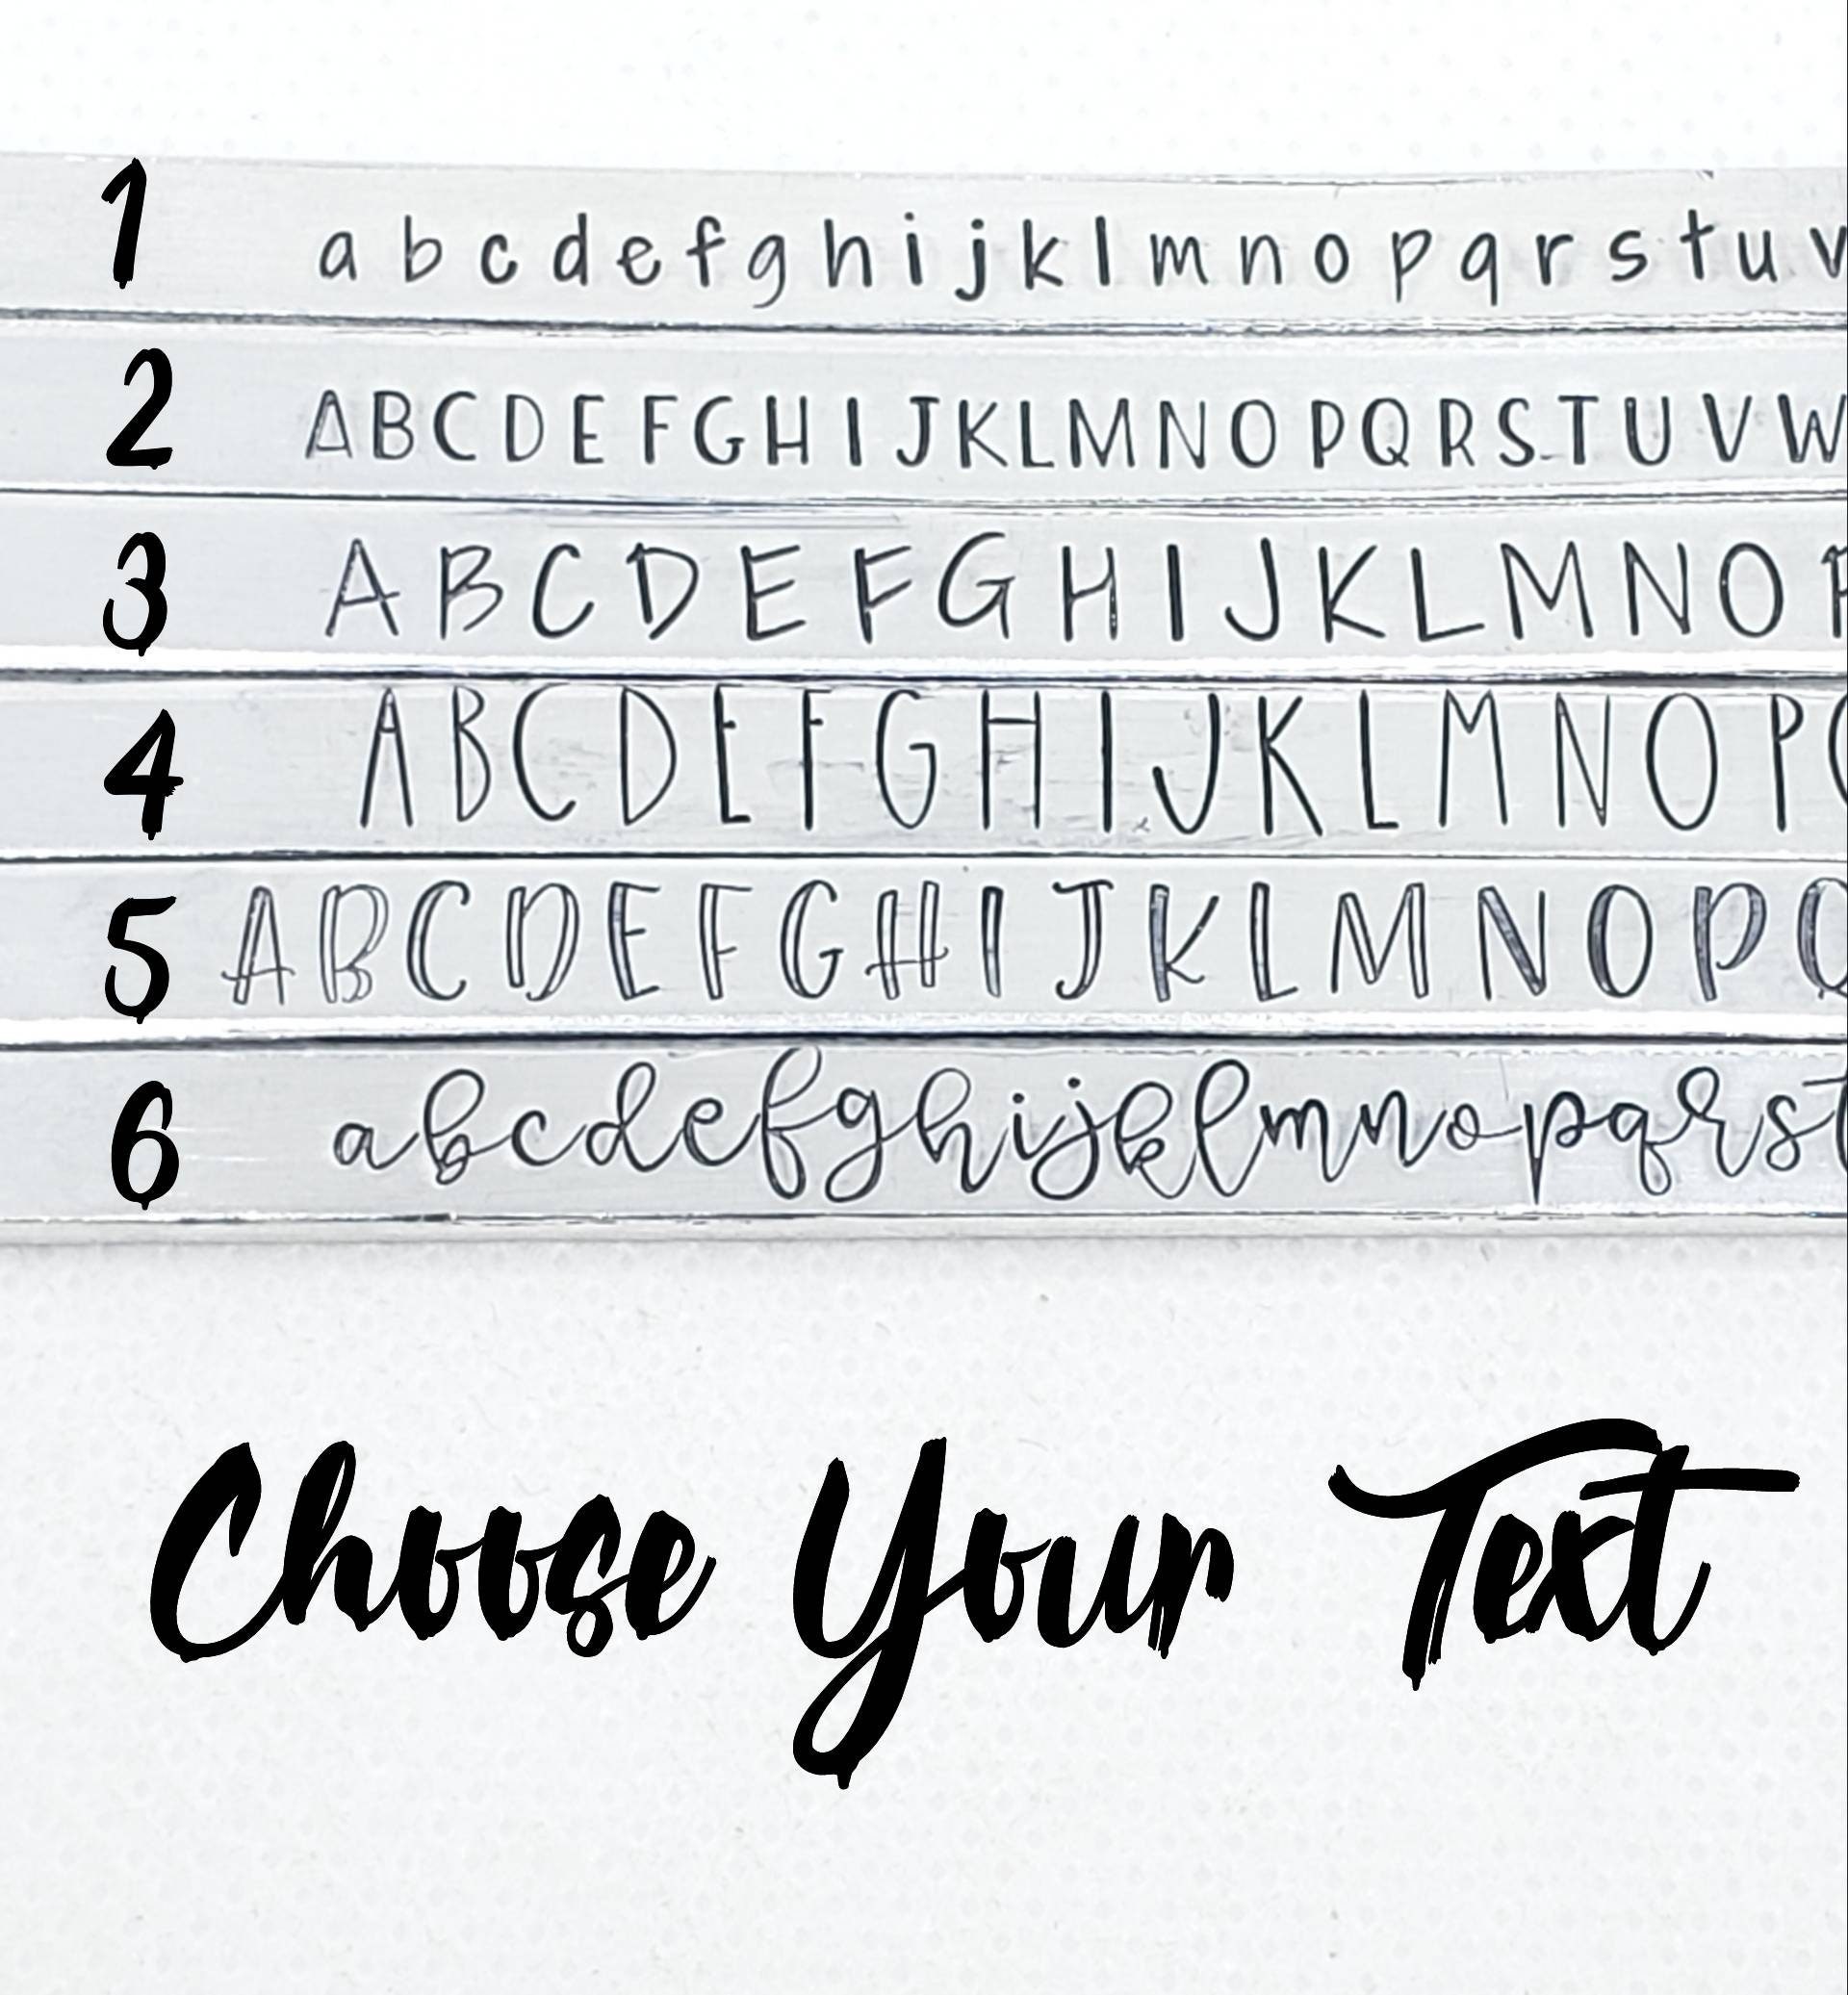 1 a b c d e f g h i j k l m n o p q r s t u v
2 A B C D E F G H I J K L M N O P Q R S T U V W
3 A B C D E F G H I J K L M N O P
4 A B C D E F G H I J K L M N O P Q
5 A B C D E F G H I J K L M N O P Q
6 a b c d e f g h i j k l m n o p q r s t
Choose Your Text